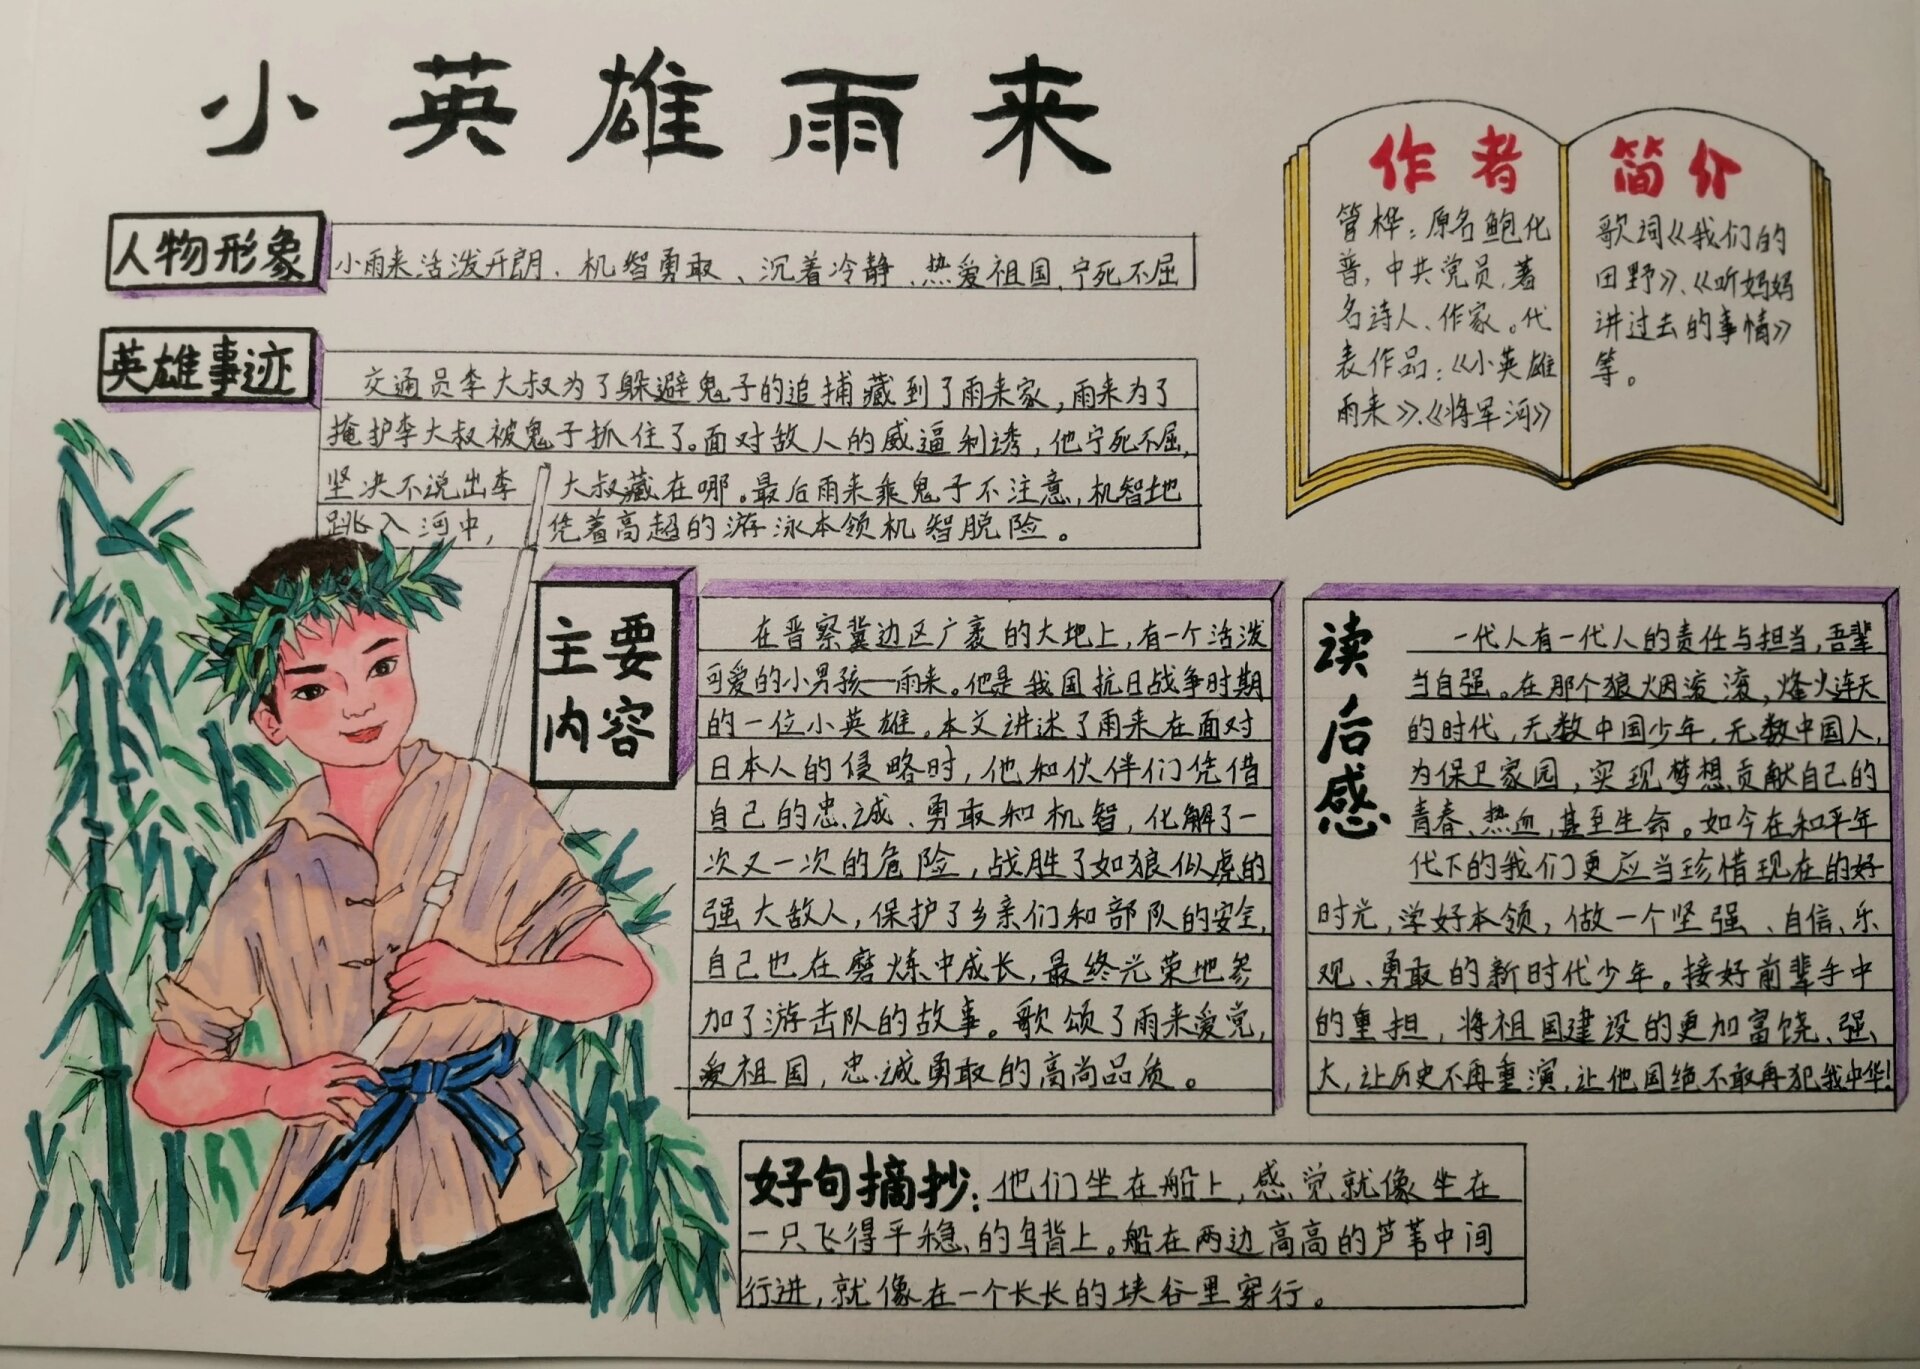 小英雄雨来
人物形象
小雨来活泼开朗、机智勇敢、沉着冷静、热爱祖国、宁死不屈
英雄事迹
交通员李大叔为了躲避鬼子的追捕藏到了雨来家，雨来为了
掩护李大叔被鬼子抓住了。面对敌人的威逼利诱，他宁死不屈，
坚决不说出李大叔藏在哪。最后雨来乘鬼子不注意，机智地
跳入河中，凭着高超的游泳本领机智脱险。
作者简介
管桦：原名鲍化
普，中共党员，著
名诗人、作家。代
表作品：《小英雄
雨来》、《将军河》
歌词《我们的
田野》、《听妈妈
讲过去的事情》
等。
主要
内容
在晋察冀边区广袤的大地上，有一个活泼
可爱的小男孩—雨来。他是我国抗日战争时期
的一位小英雄。本文讲述了雨来在面对
日本人的侵略时，他和伙伴们凭借
自己的忠诚、勇敢和机智，化解了一
次又一次的危险，战胜了如狼似虎的
强大敌人，保护了乡亲们和部队的安全，
自己也在磨炼中成长，最终光荣地参
加了游击队的故事。歌颂了雨来爱党，
爱祖国，忠诚勇敢的高尚品质。
读后感
一代人有一代人的责任与担当，吾辈
当自强。在那个狼烟滚滚，烽火连天
的时代，无数中国少年，无数中国人，
为保卫家园，实现梦想贡献自己的
青春、热血，甚至生命。如今在和平年
代下的我们更应当珍惜现在的好
时光，学好本领，做一个坚强、自信、乐
观、勇敢的新时代少年。接好前辈手中
的重担，将祖国建设的更加富饶、强
大，让历史不再重演，让他国绝不敢再犯我中华！
好句摘抄：他们坐在船上，感觉就像坐在
一只飞得平稳的鸟背上。船在两边高高的芦苇中间
行进，就像在一个长长的块谷里穿行。